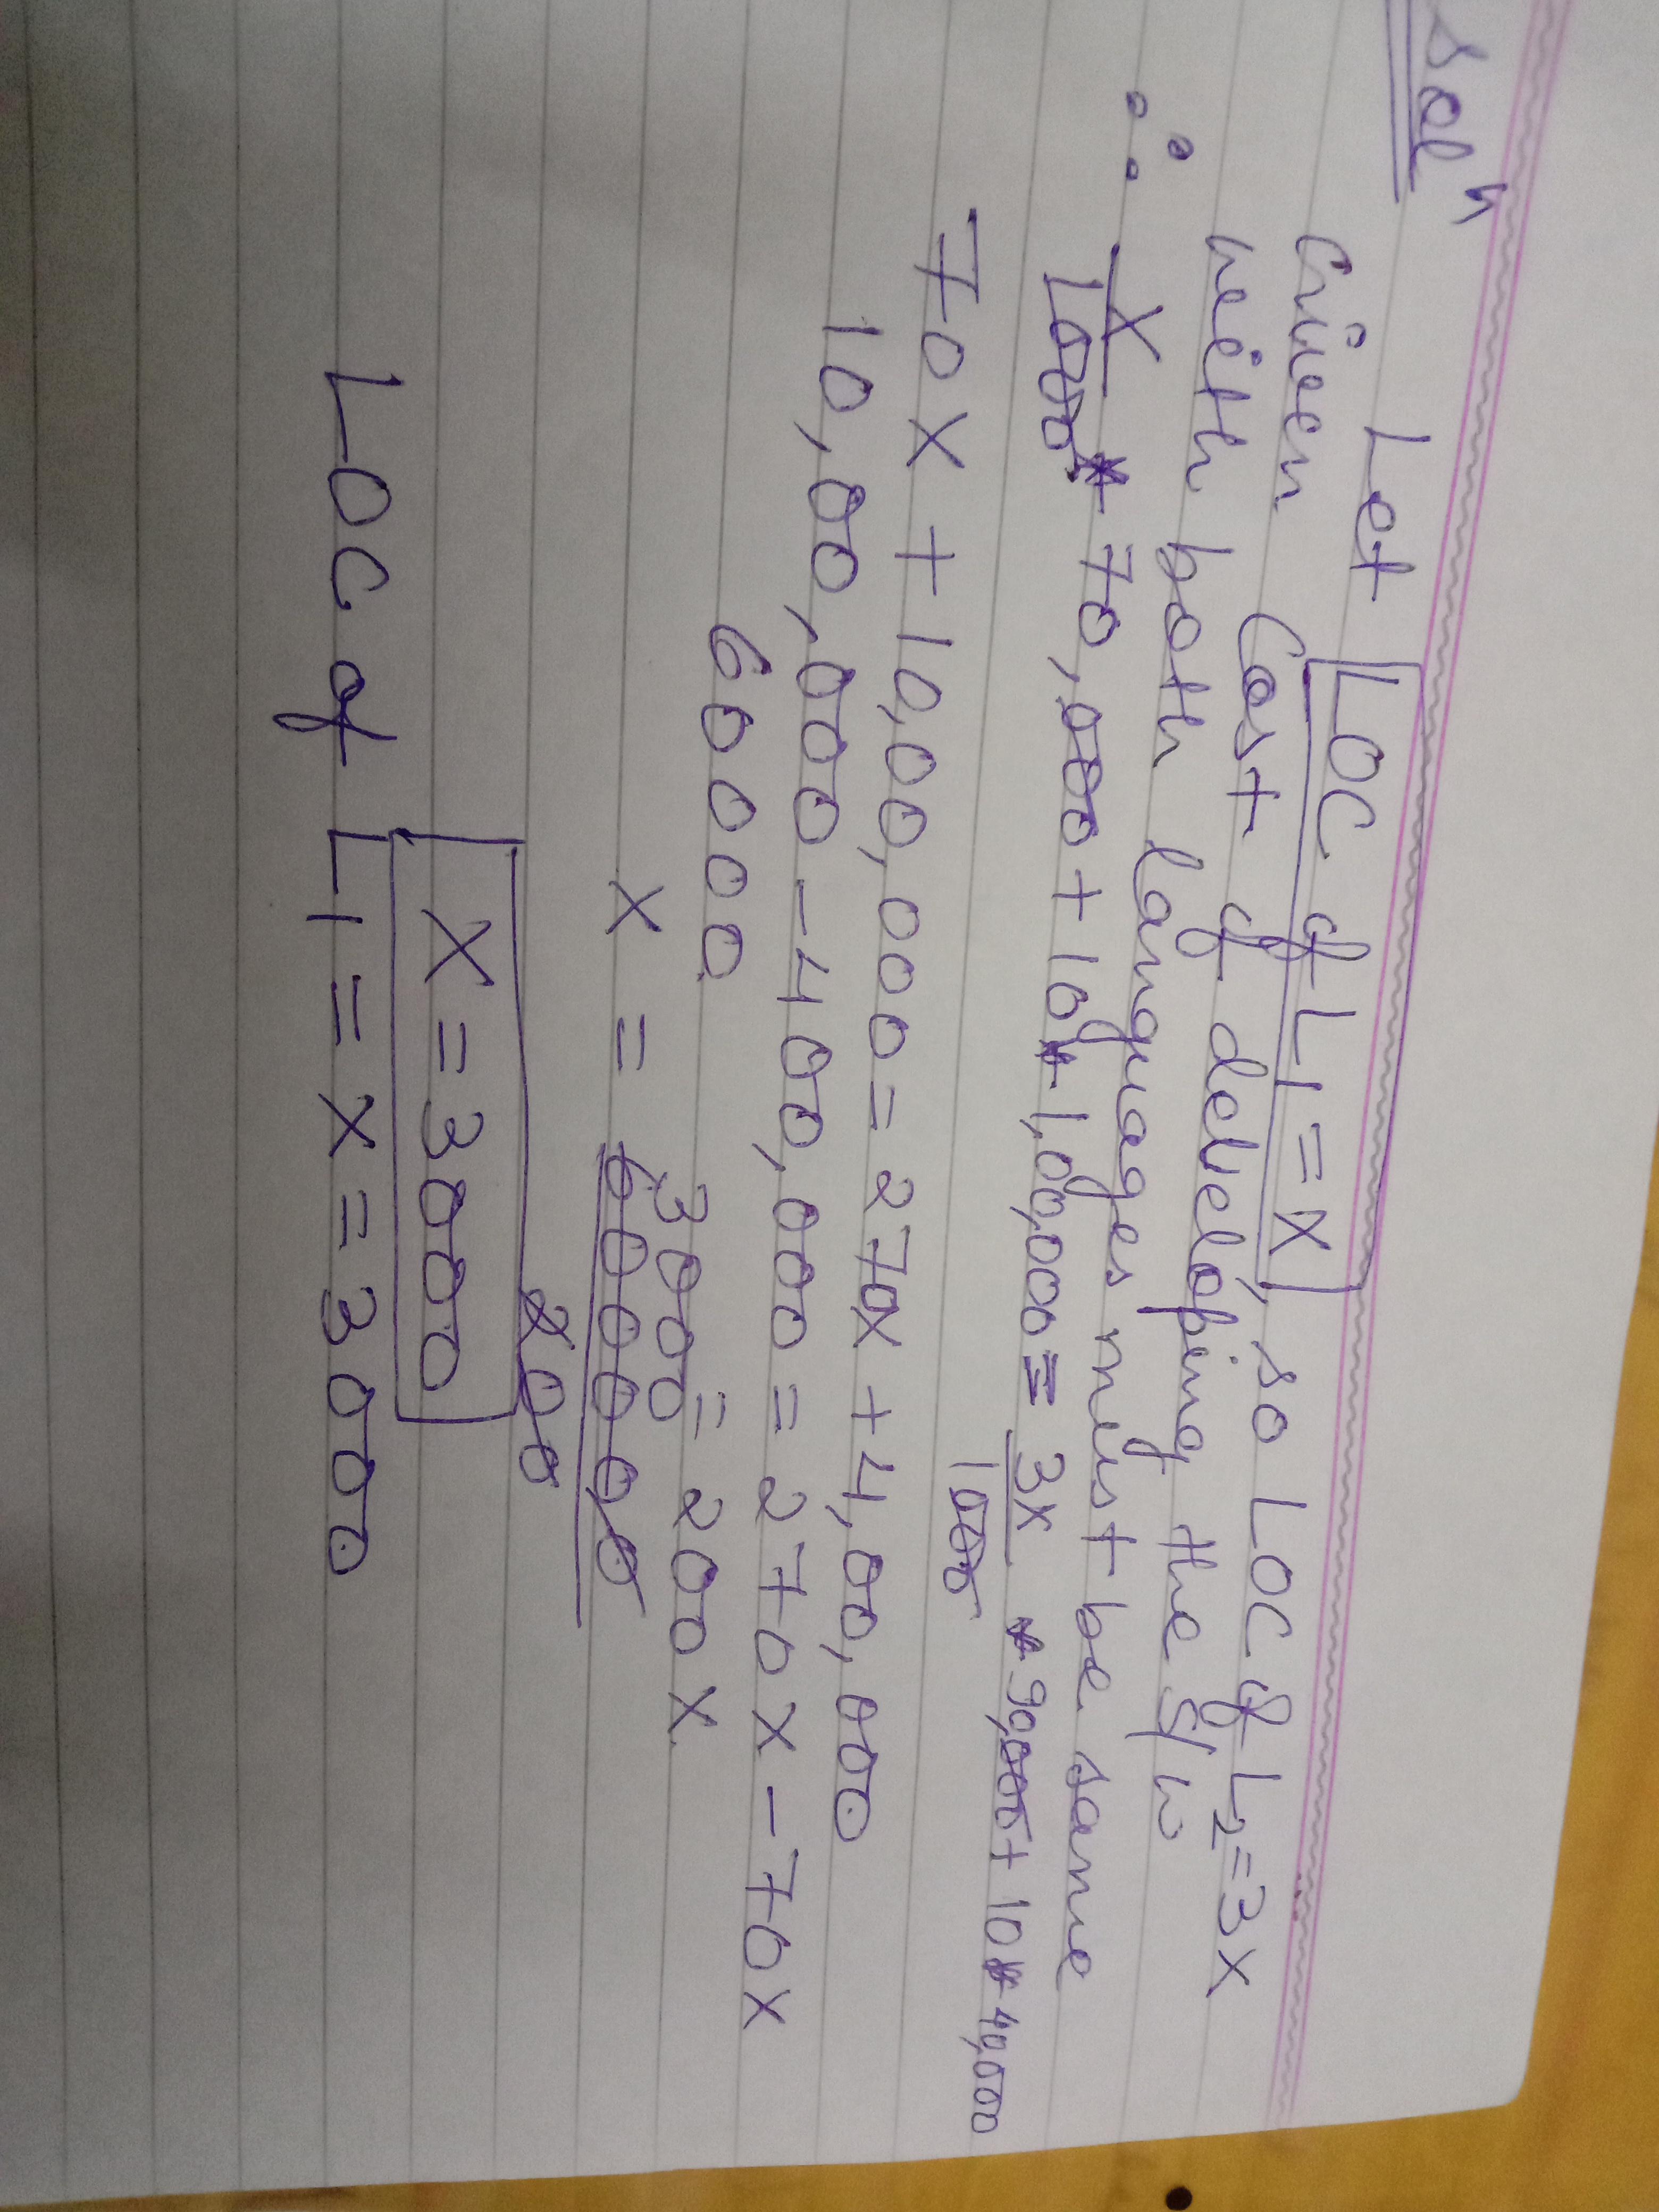 Solⁿ
Let LOC of L1 = X, so LOC of L2 = 3X
Given Cost of developing the S/W
with both languages must be same
∴ X/1000 * 70,000 + 10 * 1,00,000 = 3X/1000 * 90,000 + 10 * 40,000
70X + 10,00,000 = 270X + 4,00,000
10,00,000 - 400,000 = 270X - 70X
60000 = 200X
3000
X = 600000
200
X = 3000
LOC of L1 = X = 3000